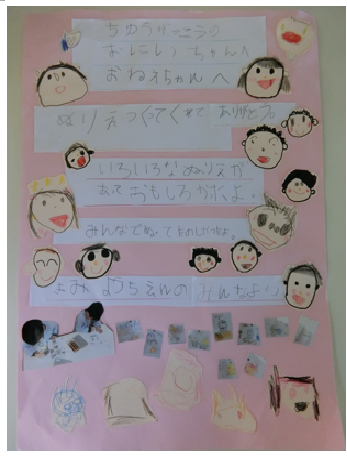 ちゅうがっこうの
おにいちゃんへ
おねえちゃんへ
ぬりえつくってくれて ありがとう。
いろいろなぬりえが
あって おもしろかったよ。
みんなでぬってたのしかったよ。
ようちえんの みんなより